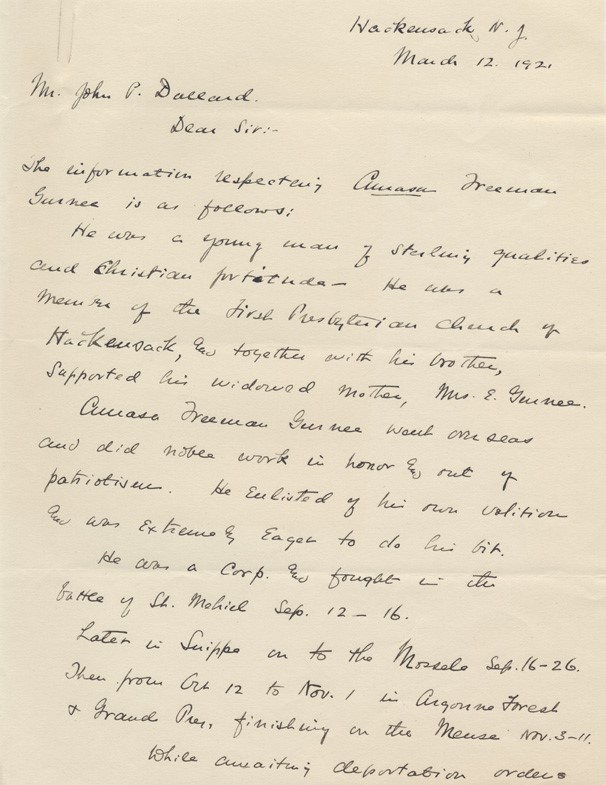 Hackensack, N. J.
March 12. 1921
Mr. John P. Dullard.
Dear Sir:-
The information respecting Amasa Freeman
Gurnee is as follows:
He was a young man of sterling qualities
and Christian fortitude - He was a
member of the First Presbyterian church of
Hackensack, and together with his brother,
supported his widowed mother, Mrs. E. Gurnee.
Amasa Freeman Gurnee went overseas
and did noble work in honor and out of
patriotism. He enlisted of his own volition
and was extremely eager to do his bit.
He was a Corp. and fought in the
battle of St. Mehiel Sep. 12 - 16.
Later in Suippe on to the Mosselle Sep. 16-26.
Then from Oct 12 to Nov. 1 in Argonne Forest
& Grande Pre, finishing on the Meuse Nov. 3-11.
While awaiting deportation orders